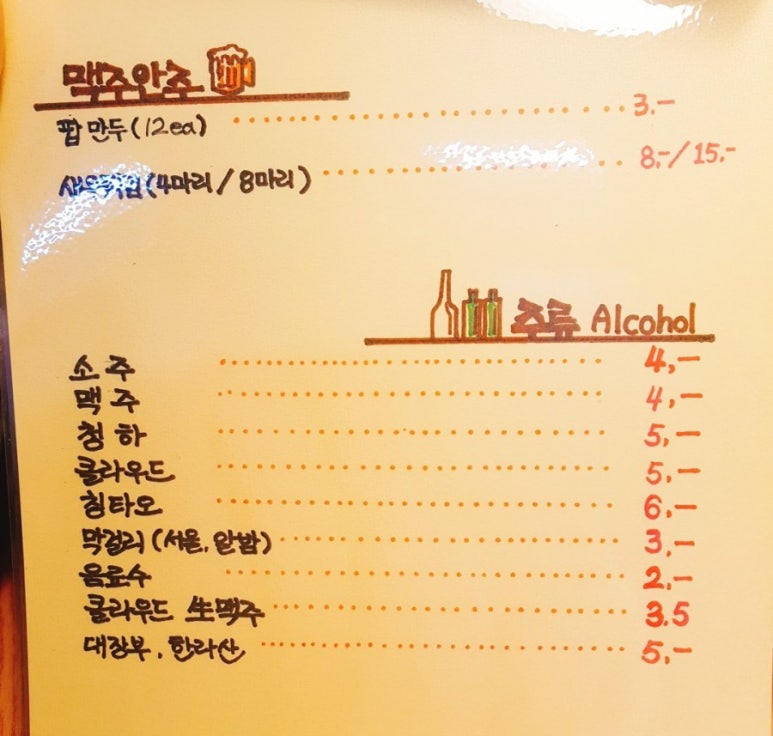 맥주안주
팝만두(12ea) 3.-
새우튀김(4마리/8마리) 8.-/15.-
주류 Alcohol
소주 4,-
맥주 4,-
청하 5,-
클라우드 5,-
칭타오 6,-
막걸리(서울, 알밤) 3,-
음료수 2,-
클라우드 生맥주 3.5
대장부, 한라산 5,-